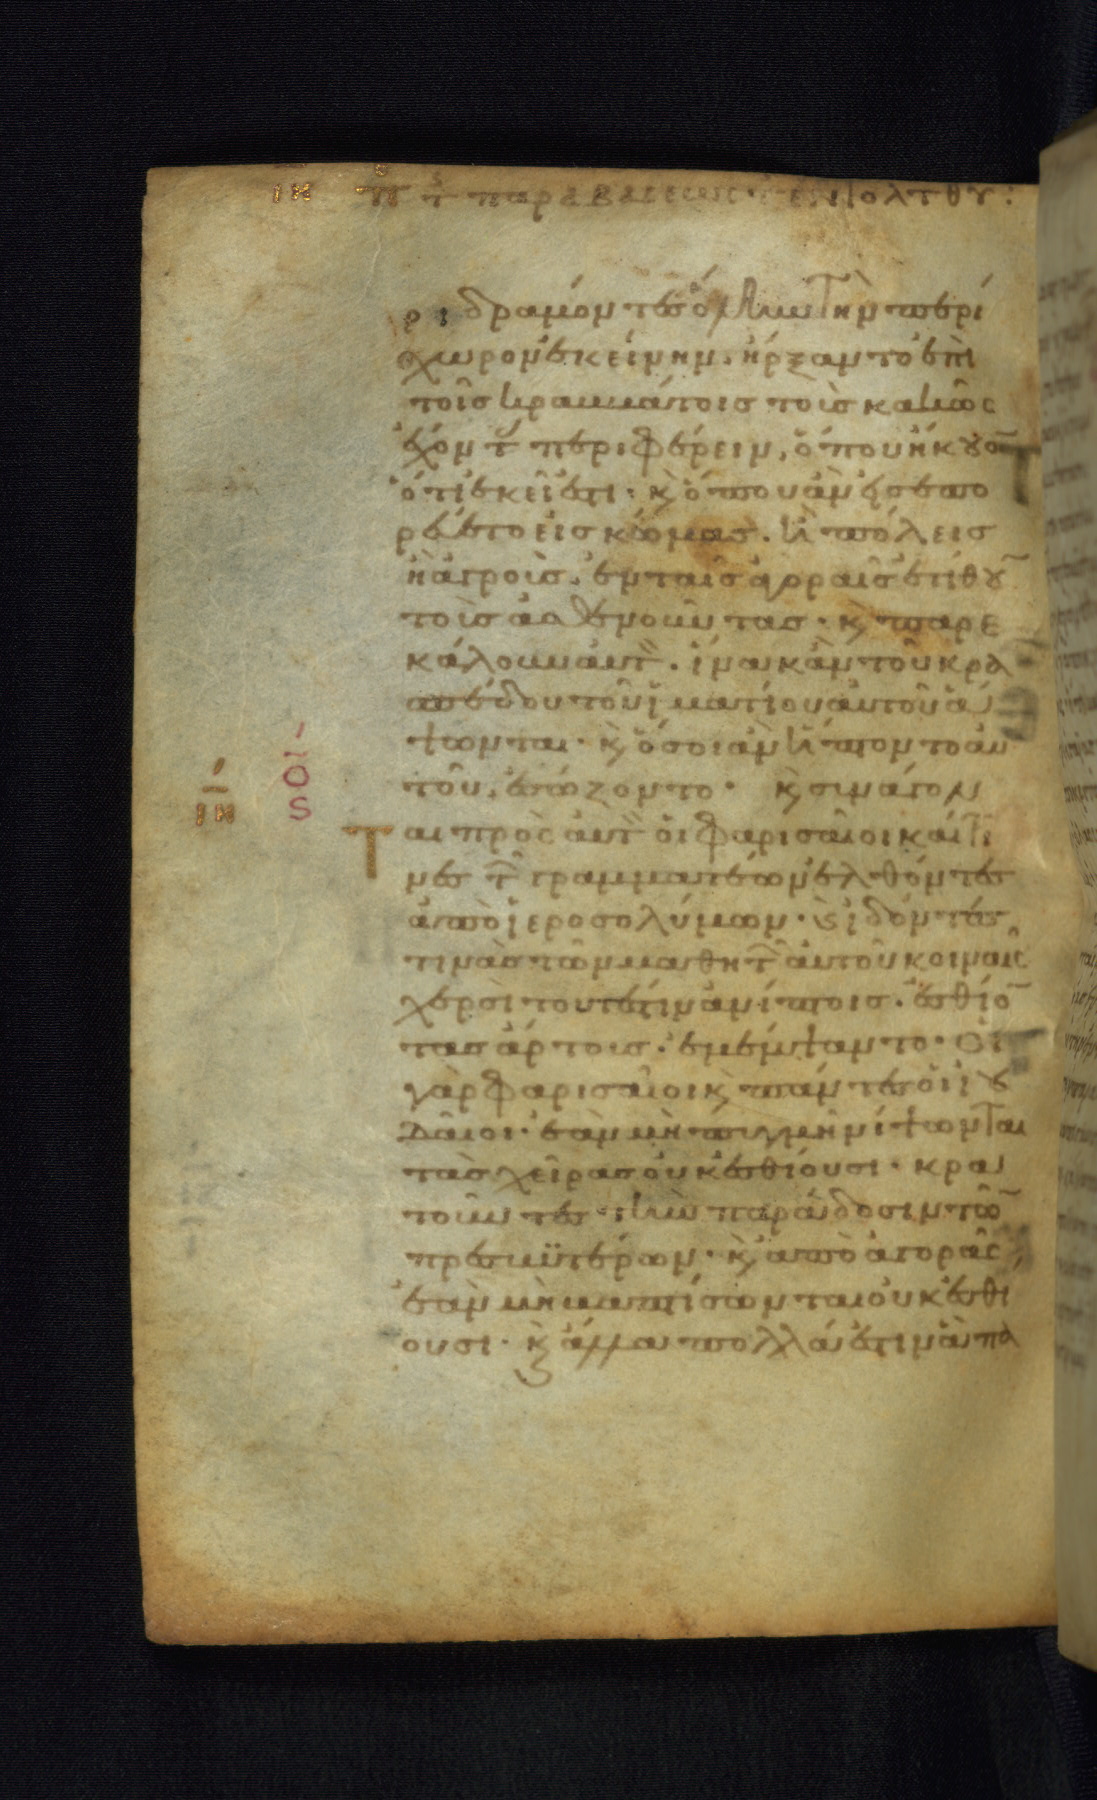 ιη π τ παραβάσεως τ εντολ τ θυ:
ριδραμόντες ὅλην τὴν περί
χωρον ἐκείνην. ἤρξαντο ἐπὶ
τοῖς κραββάτοις τοὺς κακῶς
ἔχοντ περιφέρειν, ὅπου ἤκουο̅
ὅτι ἐκεῖ ἐστι· κ ὅπου ἂν εἰσεπο
ρεύετο εἰς κώμας. ἢ πόλεις
ἢ ἀγροὺς. ἐν ταῖς ἀγοραῖς ἐτίθου̅
τοὺς ἀσθενοῦντας· κ παρε
κάλουν αὐτ. ἵνα κἂν τοῦ κρα
σπέδου τοῦ ἱματίου αὐτοῦ ἅ
ψωνται· κ ὅσοι ἂν ἥπτοντο αὐ
τοῦ, ἐσώζοντο· κ συνάγον
Ται πρὸς αὐτ οἱ φαρισαῖοι καί τι
νες τ γραμματέων ἐλθόντες
ἀπὸ ἱεροσολύμων. κ ἰδόντες
τινὰς τῶν μαθητ αὐτοῦ κοιναῖς
χερσὶ τουτέστιν ἀνίπτοις. ἐσθίο̅
τας ἄρτους. ἐμέμψαντο. οἱ
γὰρ φαρισαῖοι κ πάντες οἱ ἰου
δαῖοι. ἐὰν μὴ πυγμῇ νίψωνται
τὰς χεῖρας οὐκ ἐσθίουσι. κρα
τοῦντες τὴν παράδοσιν τῶ̅
πρεσβυτέρων. κ ἀπὸ ἀγορᾶς,
ἐὰν μὴ βαπτίσωνται οὐκ ἐσθί
ουσι. κ ἄλλα πολλά ἐστιν ἃ πα
σις
ιη